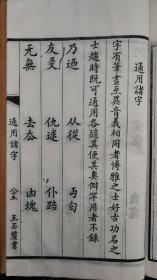 通用諸字
字有筆畫互異音義相同者博雅之士好古功名之
士趨時既可通用各隨其便其奧僻罕用者不錄
乃迺 从從 丐匄
友㕛 仇逑 仆踣
无無 去厺 凷塊
通用諸字